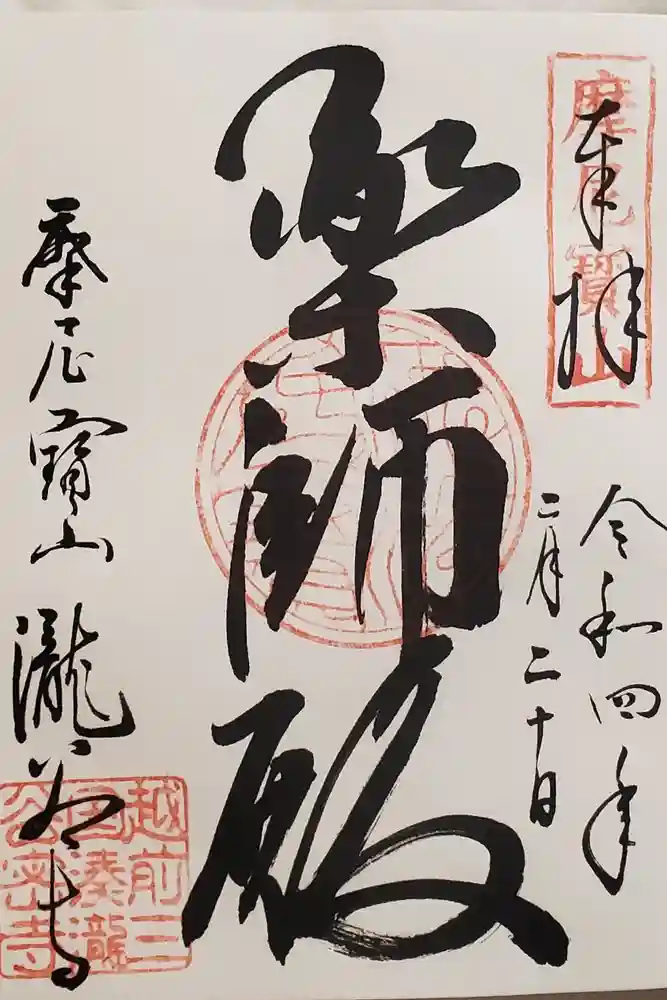 奉拝
摩尼寶山
令和四年
二月二十日
薬師殿
摩尼寶山
瀧谷寺
越前三
國湊瀧
谷密寺